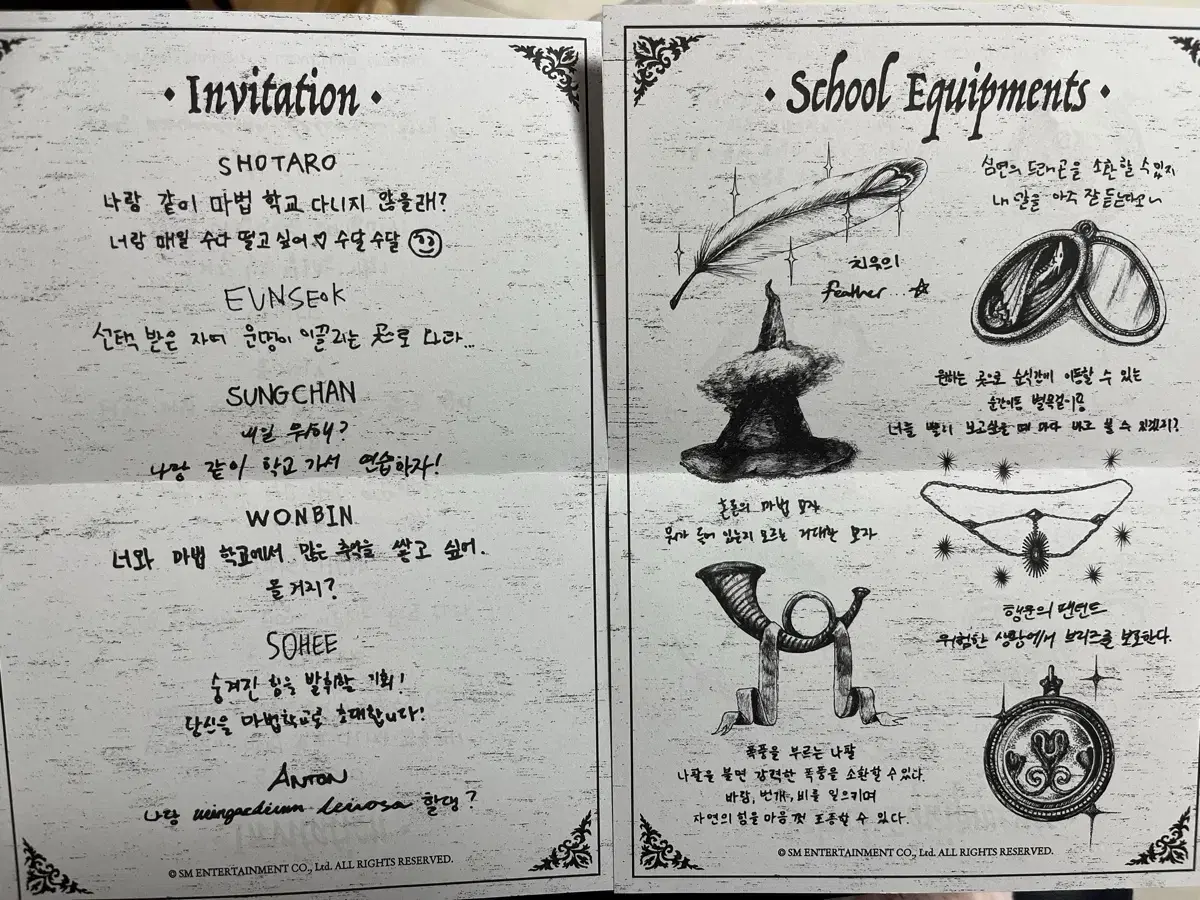 Invitation
SHOTARO
나랑 같이 마법 학교 다니지 않을래?
너랑 매일 수다 떨고 싶어♡ 수달수달
EUNSEOK
선택 받은 자여 운명이 이끌리는 곳으로 나와...
SUNGCHAN
내일 뭐해?
나랑 같이 학교 가서 연습하자!
WONBIN
너와 마법 학교에서 많은 추억을 쌓고 싶어.
올 거지?
SOHEE
숨겨진 힘을 발휘할 기회!
당신을 마법학교로 초대합니다!
ANTON
나랑 wingardium leviosa 할댕?
© SM ENTERTAINMENT CO., Ltd. ALL RIGHTS RESERVED.
School Equipments
치유의
feather...☆
심연의 드래곤을 소환할 수 있지
내 말을 아주 잘 듣는다고~
혼돈의 마법 모자
뭐가 들어 있는지 모르는 거대한 모자
원하는 곳으로 순식간에 이동할 수 있는
순간이동 별목걸이
너를 빨리 보고싶을 때 마다 바로 볼 수 있겠지?
폭풍을 부르는 나팔
나팔을 불면 강력한 폭풍을 소환할 수 있다.
바람, 번개, 비를 일으키며
자연의 힘을 마음껏 조종할 수 있다.
행운의 팬던트
위험한 상황에서 브리즈를 보호한다.
© SM ENTERTAINMENT CO., Ltd. ALL RIGHTS RESERVED.